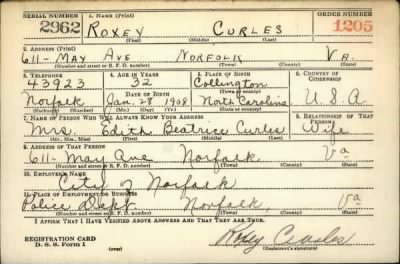 SERIAL NUMBER 1. NAME (Print) ORDER NUMBER
2962 ROXEY CURLES 1205
(First) (Middle) (Last)
2. ADDRESS (Print)
611- MAY AVE NORFOLK VA.
(Number and street or R. F. D. number) (Town) (County) (State)
3. TELEPHONE 4. AGE IN YEARS 5. PLACE OF BIRTH 6. COUNTRY OF CITIZENSHIP
43923 32 Collington
DATE OF BIRTH (Town or county)
Norfolk Jan. 28 1908 North Carolina U.S.A
(Exchange) (Number) (Mo.) (Day) (Yr.) (State or country)
7. NAME OF PERSON WHO WILL ALWAYS KNOW YOUR ADDRESS 8. RELATIONSHIP OF THAT PERSON
Mrs. Edith Beatrice Curles Wife
(Mr., Mrs., Miss) (First) (Middle) (Last)
9. ADDRESS OF THAT PERSON
611- May Ave Norfolk Va
(Number and street or R. F. D. number) (Town) (County) (State)
10. EMPLOYER'S NAME
City of Norfolk
11. PLACE OF EMPLOYMENT OR BUSINESS
Police Dept. Norfolk, Va
(Number and street or R. F. D. number) (Town) (County) (State)
I AFFIRM THAT I HAVE VERIFIED ABOVE ANSWERS AND THAT THEY ARE TRUE.
REGISTRATION CARD
D. S. S. Form 1 (over) Roxey Curles
(Registrant's signature)